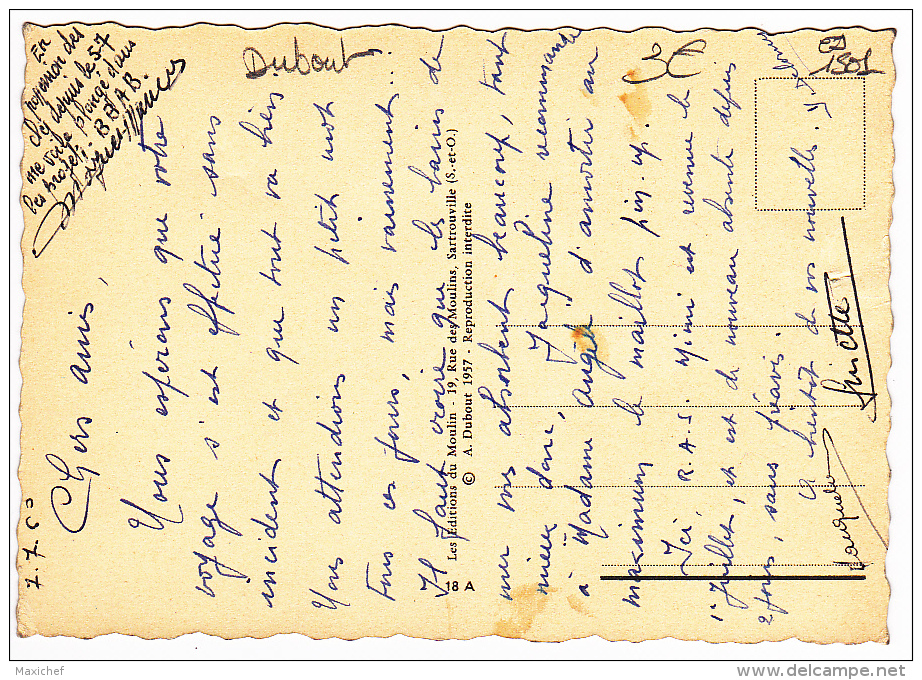 7.7.60
Chers amis,
Nous espérons que votre
voyage s'est effectué sans
incident et que tout va bien
Nous attendions un petit mot
tous ces jours, mais vainement...
Il faut croire que les bains de
mer vous absorbent beaucoup, tant
mieux donc, Jacqueline recommande
à Madame Angèle d'amortir au
maximum le maillot pin-up.
Ici R.A.S. Mimi est revenue le
1er Juillet, et est de nouveau absente depuis
2 jours, sans préavis.
A bientôt de vos nouvelles.
Ginette
En
possession des
clés depuis le 5.7
me voilà plongé dans
les projets - BBAB.
Dubout
1501
Les Editions du Moulin - 19, Rue des Moulins, Sartrouville (S.-et-O.)
© A. Dubout 1957 - Reproduction interdite
18 A
Maxichef
www.delcampe.net